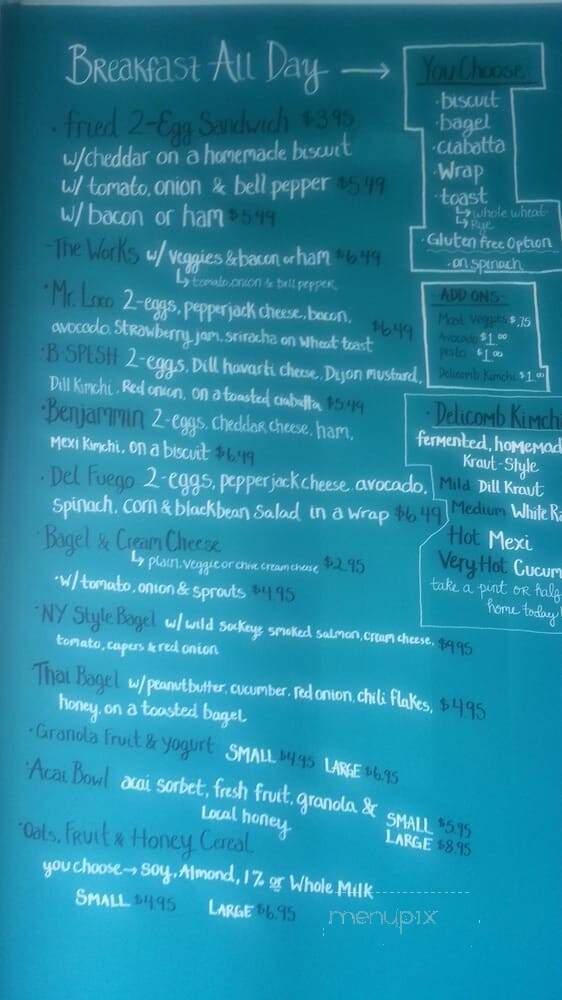 Breakfast All Day →
• Fried 2-Egg Sandwich $3.95
w/cheddar on a homemade biscuit
w/ tomato, onion & bell pepper $5.49
w/ bacon or ham $5.49
• The Works w/ veggies & bacon or ham $6.49
↳ tomato, onion & bell pepper
• Mr. Loco 2-eggs, pepperjack cheese, bacon,
avocado, Strawberry jam, sriracha on wheat toast $6.49
• B-SPESH 2-eggs, Dill havarti cheese, Dijon mustard,
Dill Kimchi, Red onion, on a toasted ciabatta $5.49
• Benjammin 2-eggs, cheddar cheese, ham,
Mexi Kimchi, on a biscuit $6.49
• Del Fuego 2-eggs, pepperjack cheese, avocado,
Spinach, corn & blackbean Salad in a wrap $6.49
• Bagel & Cream Cheese
↳ plain, veggie or chive cream cheese $2.95
• w/tomato, onion & sprouts $4.95
• NY Style Bagel w/ wild sockeye smoked salmon, cream cheese, $9.95
tomato, capers & red onion
Thai Bagel w/peanut butter, cucumber, red onion, chili flakes, $4.95
honey, on a toasted bagel
• Granola Fruit & yogurt SMALL $4.95 LARGE $6.95
• Acai Bowl acai sorbet, fresh fruit, granola & SMALL $5.95
Local honey LARGE $8.95
• Oats, Fruit & Honey Cereal
you choose → soy, Almond, 1% or Whole Milk
SMALL $4.95 LARGE $6.95
You Choose
• biscuit
• bagel
• ciabatta
• Wrap
• toast
↳ whole wheat
↳ Rye
• Gluten free Option
• on spinach
ADD ONS
Meat, Veggies $.75
Avocado $1.00
pesto $1.00
Delicomb Kimchi $1.00
• Delicomb Kimch
fermented, homemad
Kraut-Style
Mild Dill Kraut
Medium White Ra
Hot Mexi
Very Hot Cucum
take a pint or half
home today!
menupix